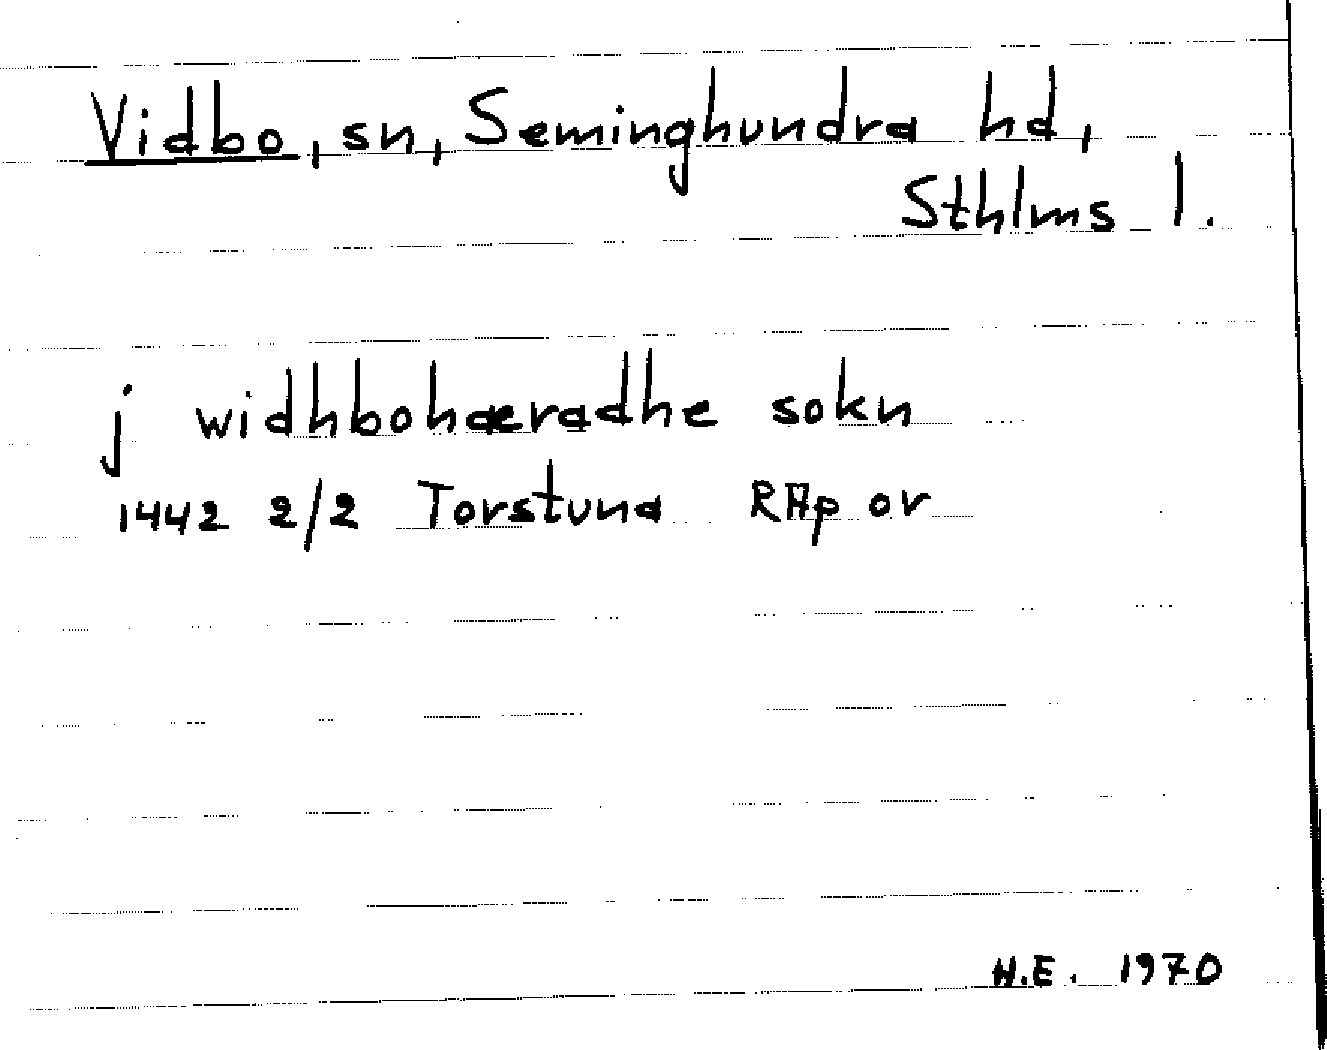 Vidbo, sn, Seminghundra hd,
Sthlms l.
j widhbohæradhe sokn
1442 2/2 Torstuna RAp or
H.E. 1970